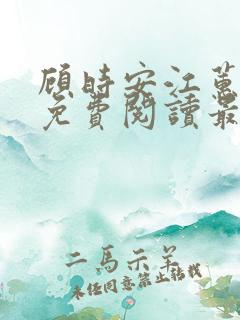 顾時安江蕙
免費閱讀最
二馬示羊
未经同意禁止转载